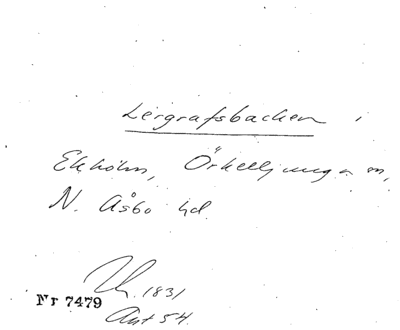 Lergrafsbacken,
Ekholm, Örkelljunga sn,
N. Åsbo hd.
1831
Nr 7479
Ant 54.